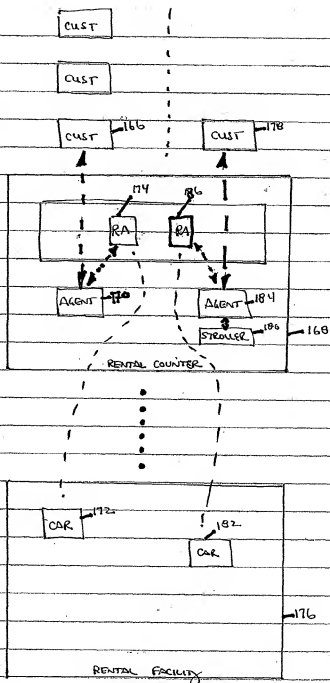 CUST
CUST
CUST 166 CUST 178
174 186
RA RA
AGENT 170 AGENT 184
STROLLER 180
168
RENTAL COUNTER
CAR 172 CAR 182
176
RENTAL FACILITY